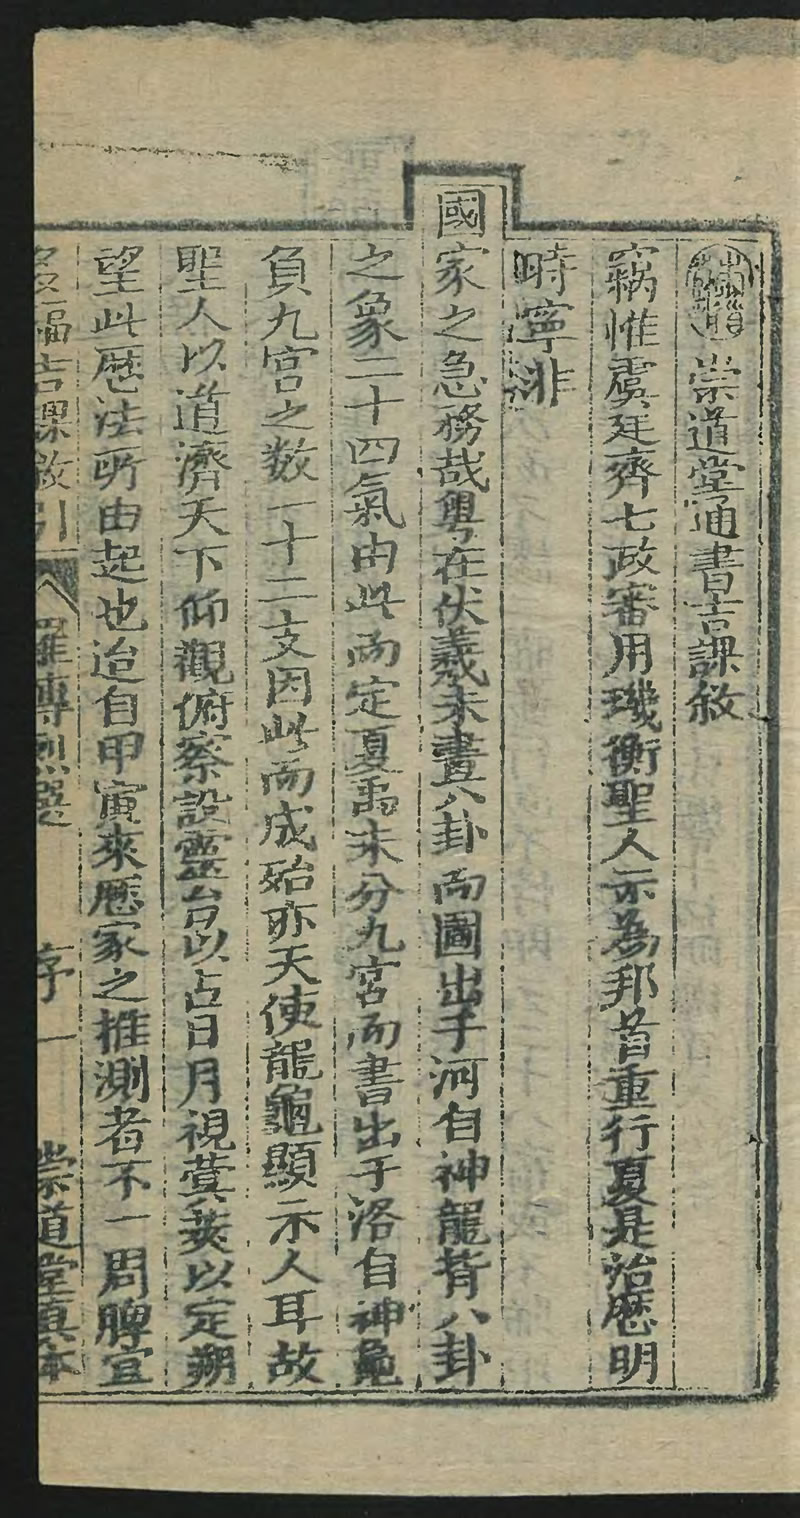 崇道堂通書吉課敘
竊惟虞廷齊七政審用璣衡聖人示為邦首重行夏是治歷明
時寧非
國家之急務哉粵在伏羲未畫八卦而圖出乎河自神龍背八卦
之象二十四氣由此而定夏禹未分九宮而書出于洛自神龜
負九宮之数一十二支因此而成殆亦天使龍龜顯示人耳故
聖人以道濟天下仰觀俯察設靈台以占日月視蓂莢以定朔
望此歷法所由起也迨自甲寅來歷家之推測者不一周髀宣
福吉課敘引 羅傳烈選 序 一 崇道堂真本